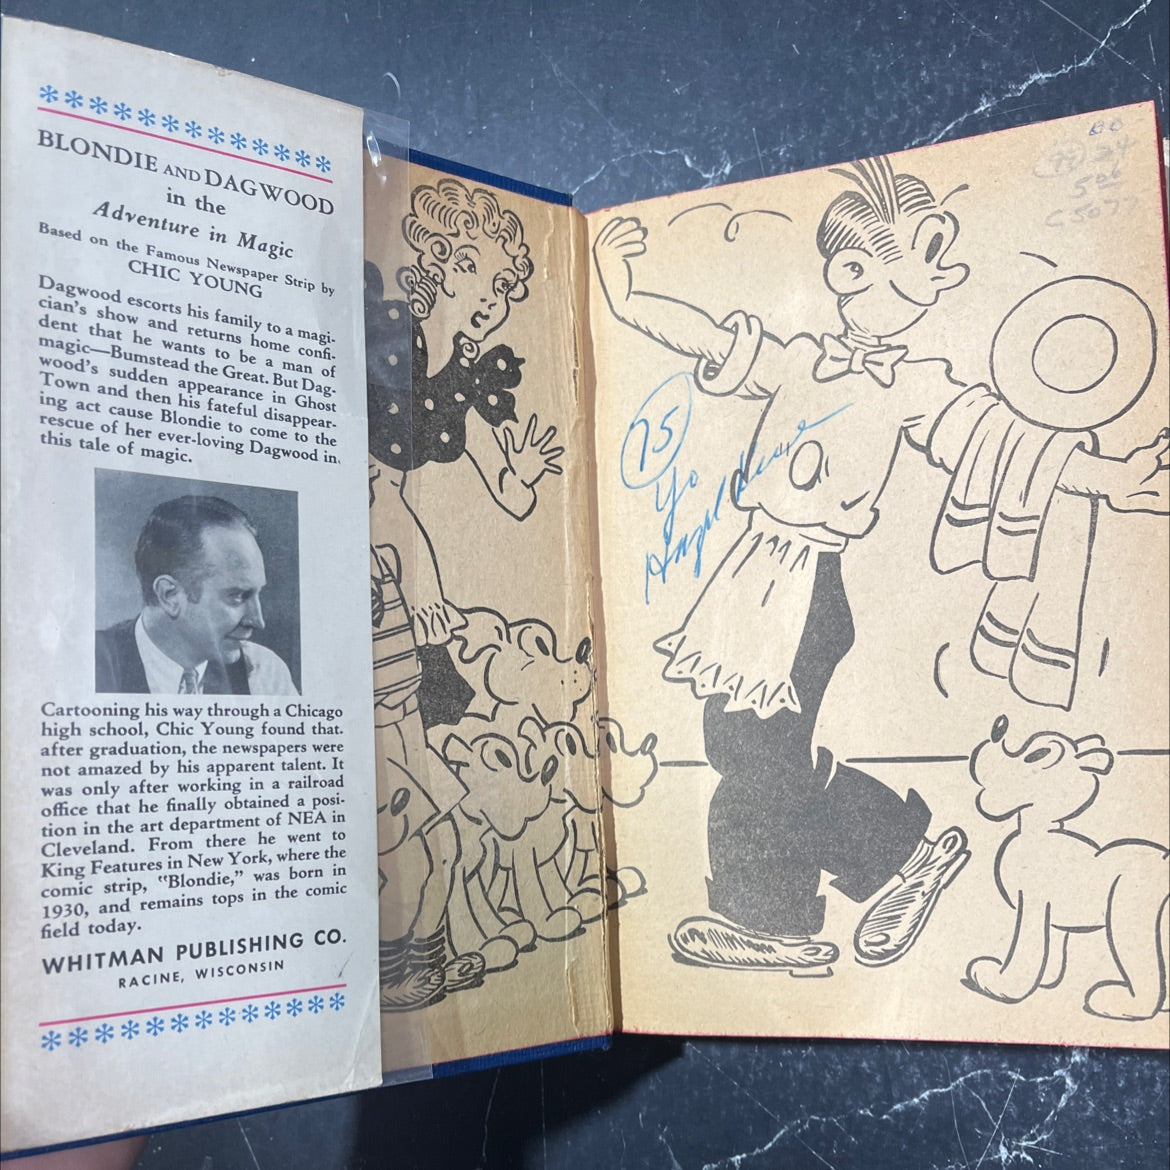 BLONDIE AND DAGWOOD
in the
Adventure in Magic
Based on the Famous Newspaper Strip by
CHIC YOUNG
Dagwood escorts his family to a magi-
cian's show and returns home confi-
dent that he wants to be a man of
magic—Bumstead the Great. But Dag-
wood's sudden appearance in Ghost
Town and then his fateful disappear-
ing act cause Blondie to come to the
rescue of her ever-loving Dagwood in
this tale of magic.
Cartooning his way through a Chicago
high school, Chic Young found that
after graduation, the newspapers were
not amazed by his apparent talent. It
was only after working in a railroad
office that he finally obtained a posi-
tion in the art department of NEA in
Cleveland. From there he went to
King Features in New York, where the
comic strip, "Blondie," was born in
1930, and remains tops in the comic
field today.
WHITMAN PUBLISHING CO.
RACINE, WISCONSIN
75